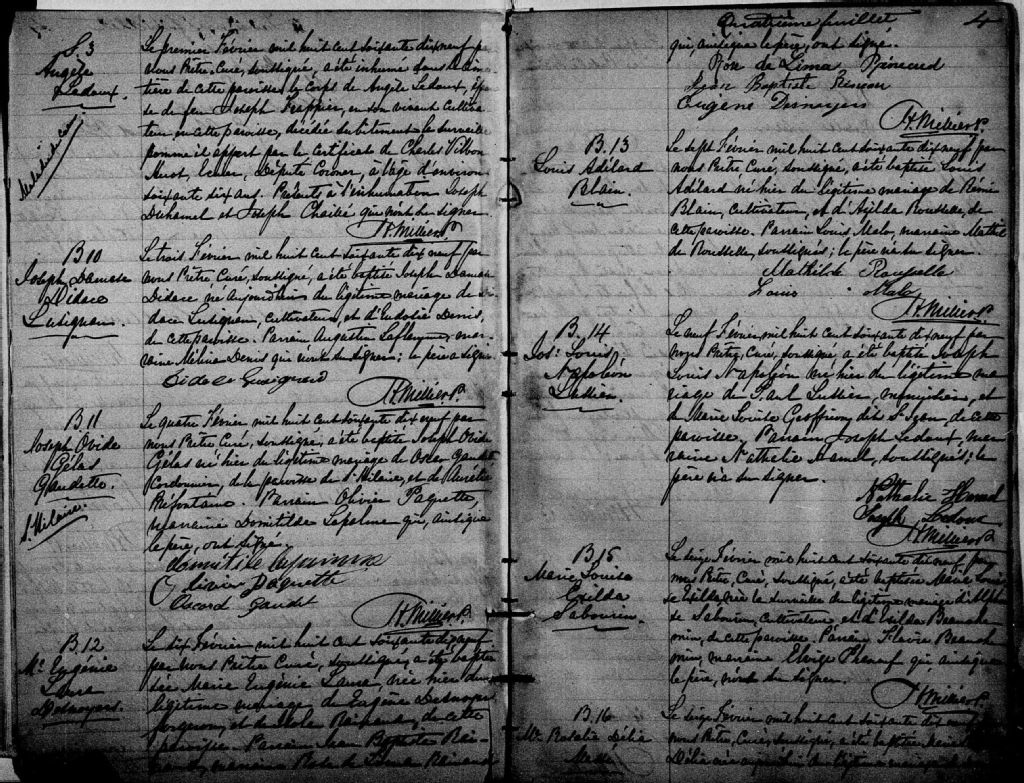 S. 3
Angèle
Ledoux.
Le premier Février mil huit cent soixante dix neuf par
nous Prêtre, Curé, soussigné, a été inhumé dans le cime-
tière de cette paroisse le corps de Angèle Ledoux, épou-
se de feu Joseph Frappier, en son vivant cultiva-
teur en cette paroisse, décédée subitement la surveille
comme il appert par le certificat de Charles
Coroner, à l'âge d'environ
soixante dix ans. Présents à l'inhumation Joseph
Duhamel et Joseph qui n'ont su signer.
H. Millier P.
B 10
Joseph Damase
Didace
Lusignan.
Le trois Février mil huit cent soixante dix neuf par
nous Prêtre Curé, soussigné, a été baptisé Joseph Damase
Didace né aujourd'hui du légitime mariage de Di-
dace Lusignan, cultivateur, et d'Eudoxie Denis,
de cette paroisse. Parrain Augustin Laflamme, mar-
raine Mélina Denis qui n'ont su signer; le père a signé.
H. Millier P.
B 11
Joseph Ovide
Gélas
Gaudette.
St Hilaire.
Le quatre Février mil huit cent soixante dix neuf par
nous Prêtre Curé, soussigné, a été baptisé Joseph Ovide
Gélas né hier du légitime mariage de Oscar Gaudet
Cordonnier, de la paroisse de St Hilaire, et de Aurélie
Préfontaine. Parrain Olivier Paquette,
marraine Domitilde Lapalme qui, ainsi que
le père, ont signé.
Olivier Paquette
Oscard Gaudet
H. Millier P.
B. 12
Me Eugénie
Laura
Desnoyers.
Le dix Février mil huit cent soixante dix neuf
par nous Prêtre Curé, soussigné, a été bapti-
sée Marie Eugénie Laura née hier du
légitime mariage de Eugène Desnoyers
forgeron, et de Rose Rainard, de cette
paroisse. Parrain Jean Baptiste Rai-
nard, marraine Rose de Lima Rainard
Quatrième feuillet
4
qui, ainsi que le père, ont signé.
Rose de Lima Rainard
Jean Baptiste
Eugène Desnoyers
H. Millier P.
B. 13
Louis Adélard
Blain.
Le sept Février mil huit cent soixante dix neuf par
nous Prêtre Curé, soussigné, a été baptisé Louis
Adélard né hier du légitime mariage de Rémi
Blain, cultivateur, et d'Exilda Rousselle, de
cette paroisse. Parrain Louis Malo, marraine Mathil-
de Rousselle, soussignés; le père n'a su signer.
Mathilde Rousselle
Louis Malo
H. Millier P.
B. 14
Jos: Louis
Napoléon
Lussier.
Le neuf Février, mil huit cent soixante dix neuf par
nous Prêtre, Curé, soussigné, a été baptisé Joseph
Louis Napoléon né hier du légitime ma-
riage de Paul Lussier, menuisier, et
de Marie Louise Geoffrion dit St Jean, de cette
paroisse. Parrain Joseph Ledoux, mar-
raine Nathalie Hamel, soussignés; le
père n'a su signer.
Nathalie Hamel
Joseph Ledoux
H. Millier P.
B. 15
Marie Louise
Exilda
Sabourin.
Le seize Février mil huit cent soixante dix neuf par
nous Prêtre, Curé, soussigné, a été baptisée Marie Loui-
se Exilda née la surveille du légitime mariage d'Alphon-
se Sabourin, cultivateur, et d'Exilda Beauche-
min, de cette paroisse. Parrain Flavie Beauche-
min, marraine Eloïse Phaneuf qui ainsi que
le père, n'ont su signer.
H. Millier P.
B. 16
Me Rosalie Délia
Le seize Février mil huit cent soixante dix neuf par
nous, Prêtre, Curé, soussigné, a été baptisée, Marie